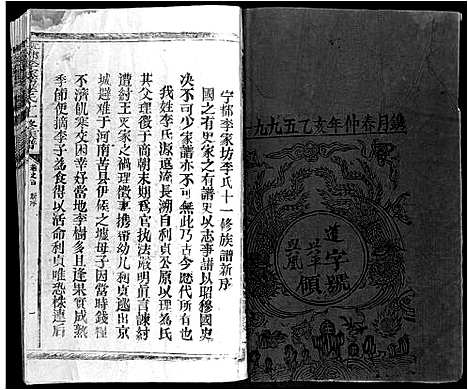 一九九五年乙亥仲春月鐫
道字號
興華
與屋領
宁都李家坊李氏十一修族譜新序
國之有史家之有譜史以志事譜以昭穆國史
决不可少家譜亦不可無此乃古今歷代所有也
我姓李氏源遠流長溯自利貞公原以理為氏
其父理徵于商朝末期為官执法嚴明直言諫紂
遭紂王灭家之禍理徵事携帶幼儿利貞逃出京
城避难于河南苦县伊侯之墟母子因當時錢糧
不濟飢寒交困幸好當地李樹多且逢果實成熟
季節便摘李子為食得以活命利貞唯恐株連后